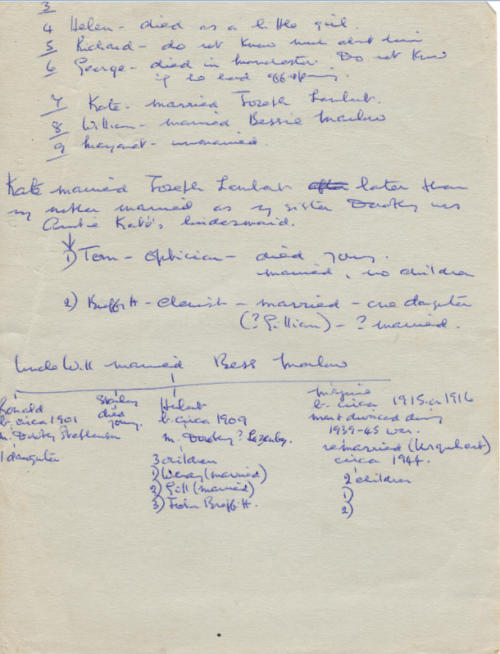 3
4 Helen - died as a little girl.
5 Richard - do not know much about him
6 George - died in Manchester. Do not know
if he had offspring.
7 Kate - married Joseph Lambert.
8 William - married Bessie Marlow
9 Margaret - unmarried.
Kate married Joseph Lambert later than
my mother married as my sister Dorothy was
Auntie Kate's bridesmaid.
1) Tom - optician - died young.
married, no children
2) - chemist - married - one daughter
(? Gillian) - ? married.
Uncle Will married Bess Marlow
Ronald
b. circa 1901
m. Dorothy Stephenson
1 daughter
Stanley
died
young.
Hubert
b. circa 1909
m. Dorothy ? Lazenby.
3 children
1) Wendy (married)
2) Gill (married)
3) John
Marjorie
b. circa 1915 or 1916
divorced during
1939-45 war.
remarried (Urquhart)
circa 1944.
2 children
1)
2)